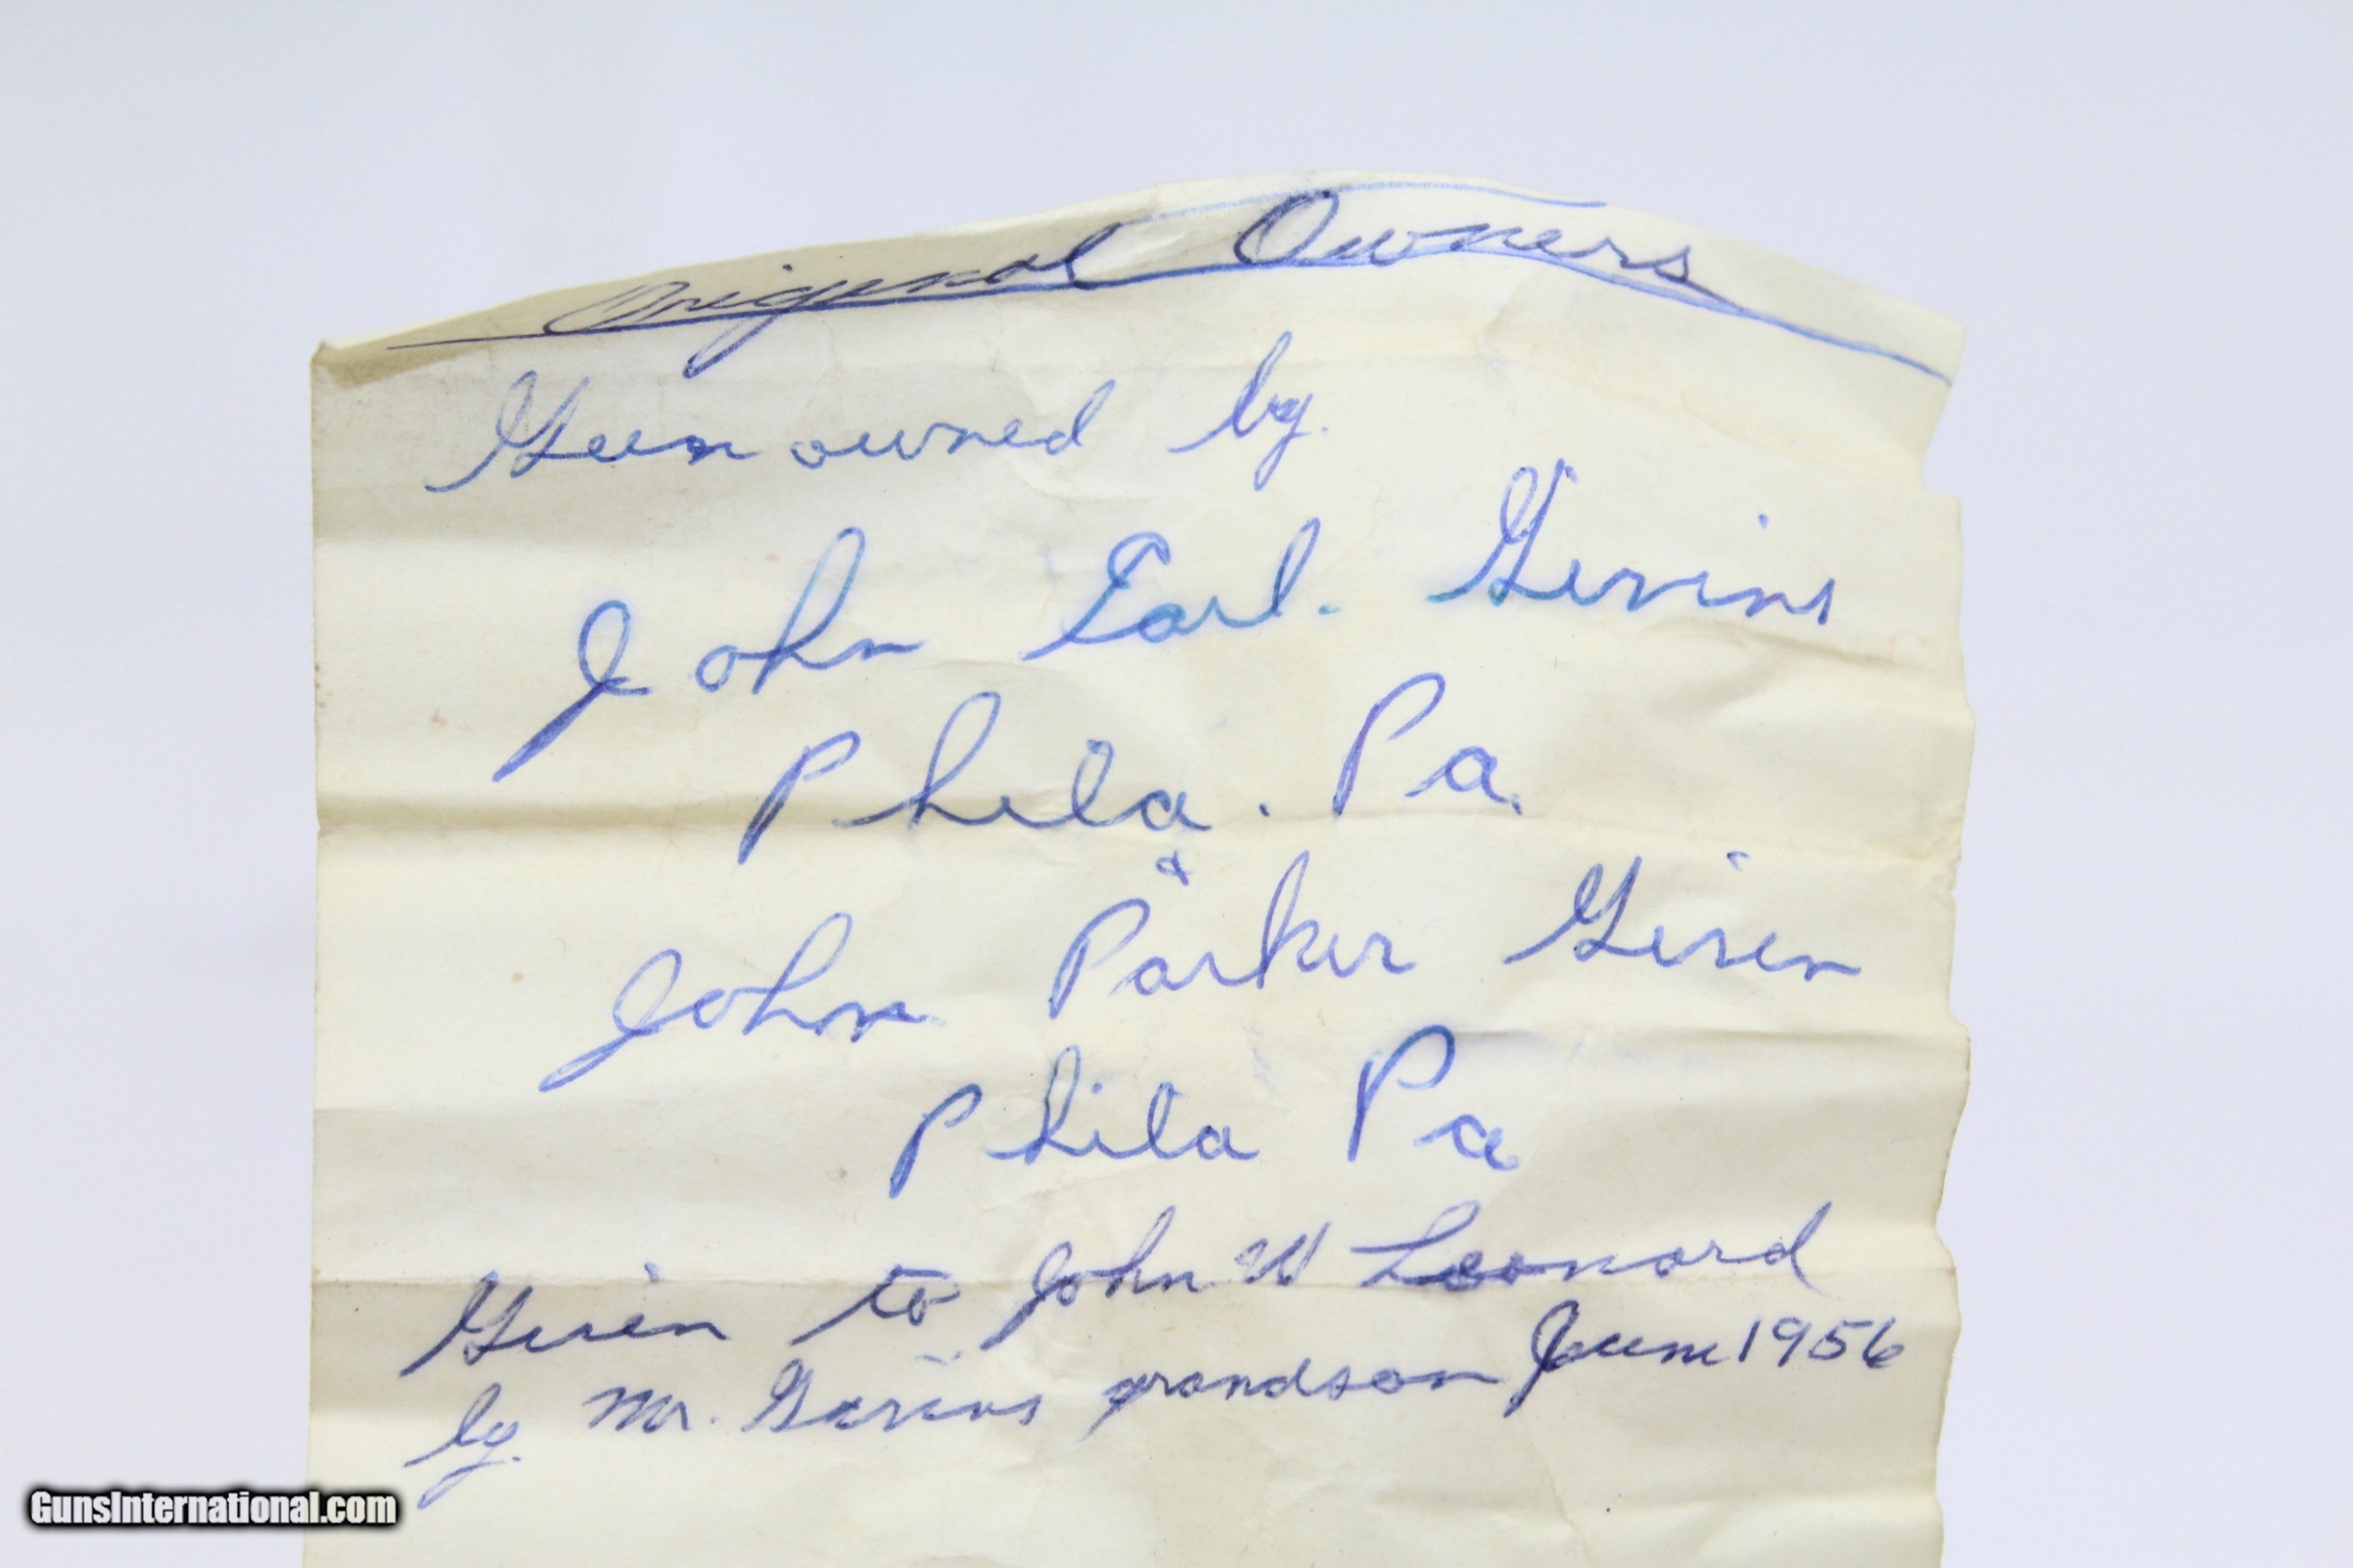 Original Owners
Gun owned by.
John Earl. Girvins
Phila. Pa.
&
John Parker Given
Phila Pa
Given to John W Leonard
by. Mr. Girvins grandson June 1956
GunsInternational.com